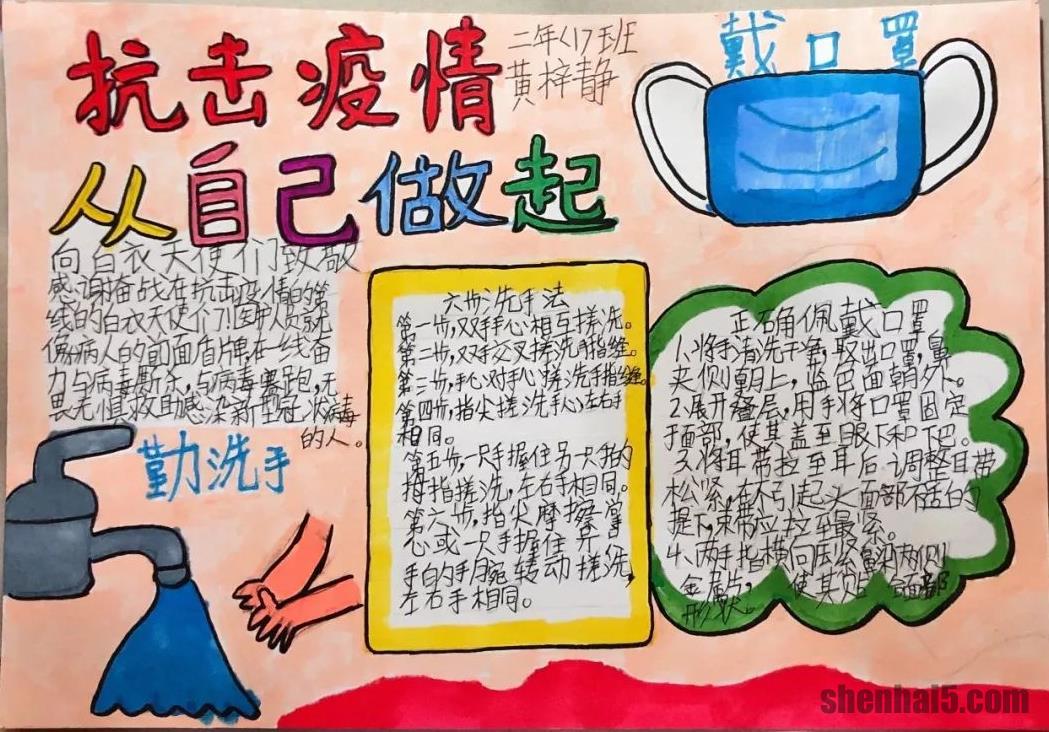 抗击疫情
二年(1)班
黄梓静
从自己做起
戴口罩
向白衣天使们致敬
感谢奋战在抗击疫情的第
线的白衣天使们!医护人员就
像病人的前面盾牌,在一线奋
力与病毒厮杀,与病毒赛跑,无
畏无惧救助感染新型冠状病毒
的人。
勤洗手
六步洗手法
第一步,双手手心相互搓洗。
第二步,双手交叉搓洗手指缝。
第三步,手心对手心搓洗手指缝。
第四步,指尖搓洗手心,左右手
相同。
第五步,一只手握住另一只手的
拇指搓洗,左右手相同。
第六步,指尖摩擦掌
心或一只手握住另一
手的手腕转动搓洗,
左右手相同。
正确佩戴口罩
1、将手清洗干净,取出口罩,鼻
夹侧朝上,蓝色面朝外。
2、展开叠层,用手将口罩固定
于面部,使其盖至眼下和下巴。
3、将耳带拉至耳后,调整耳带
松紧,在不引起头面部不适的
提下,束带应拉至最紧。
4、两手指横向压紧鼻梁两侧
金属片,使其贴合面部
形状。
shenhai5.com